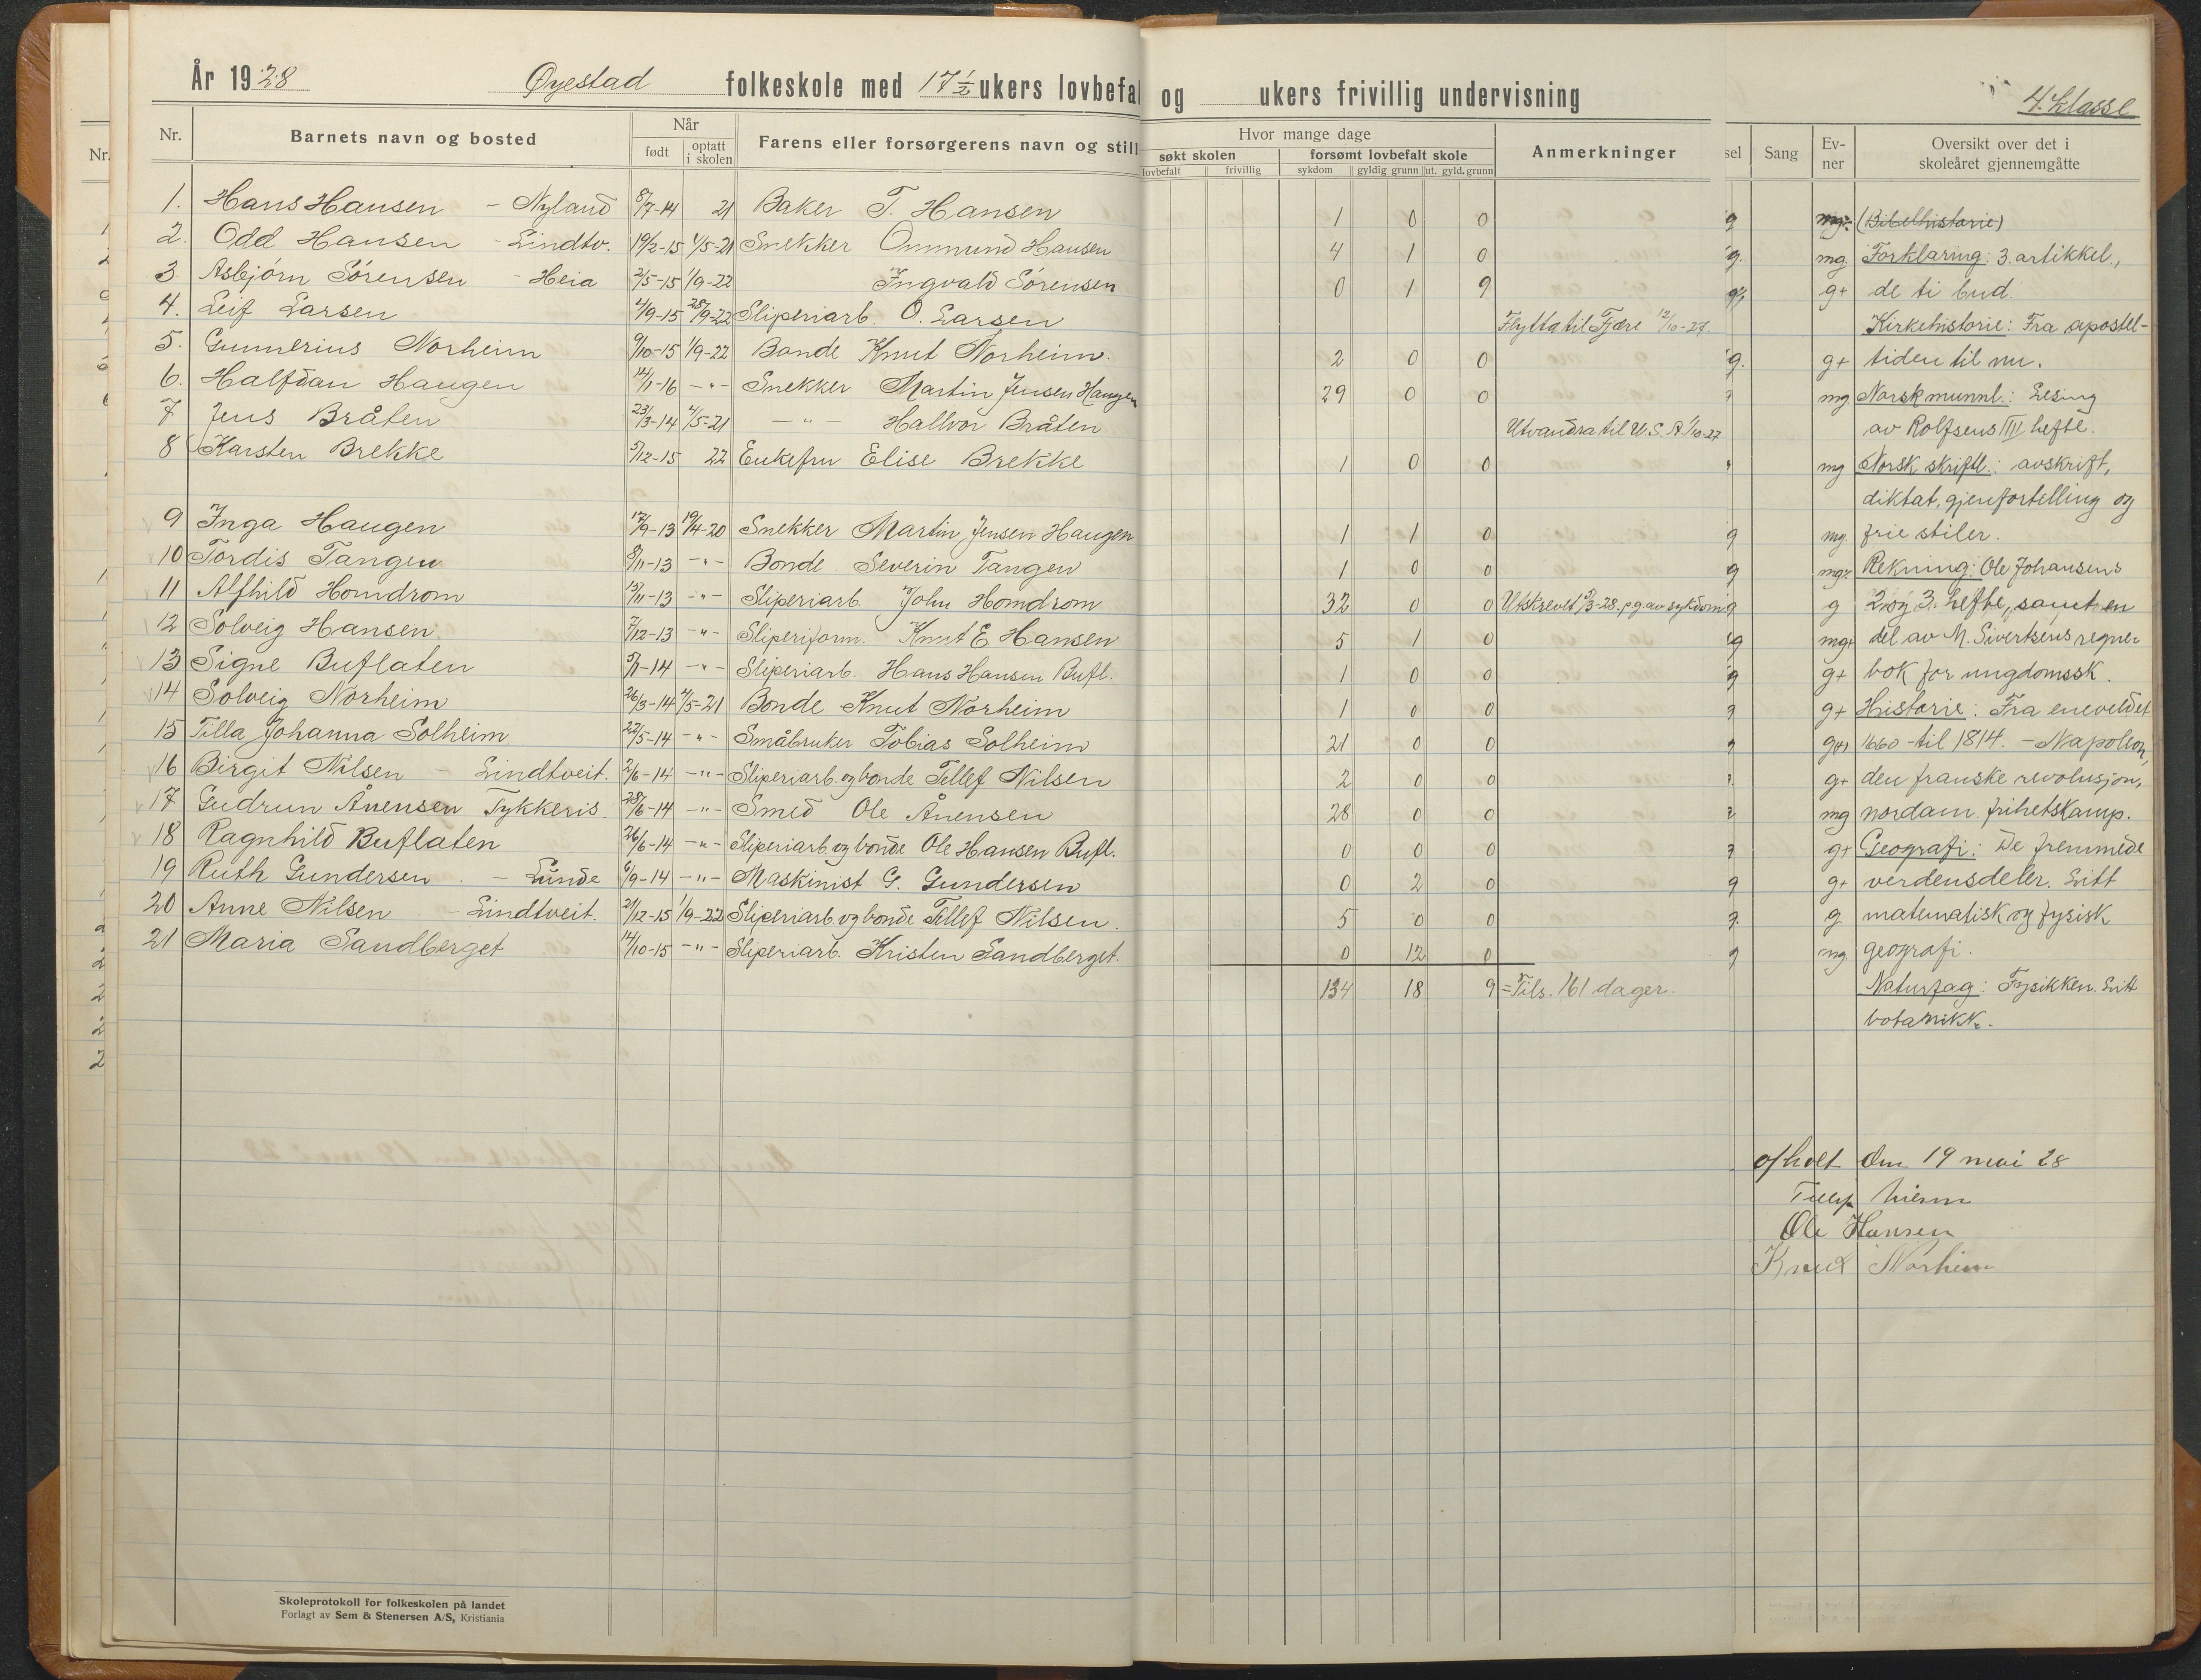 År 1928 Øyestad folkeskole med 17 ½ ukers lovbefal og ukers frivillig undervisning
4. klasse
Nr. Barnets navn og bosted Når født optatt i skolen Farens eller forsørgerens navn og still
Hvor mange dage søkt skolen lovbefalt frivillig forsømt lovbefalt skole sykdom gyldig grunn ut. gyld. grunn Anmerkninger
sel Sang Ev-ner Oversikt over det i skoleåret gjennemgåtte
Nr.
1. Hans Hansen - Nyland 8/7-14 21 Baker T. Hansen 1 0 0 g (Bibelhistorie)
2. Odd Hansen - Lindtv. 19/2-15 4/5-21 Snekker Ommund Hansen 4 1 0 g. mg. Forklaring: 3. artikkel.,
3. Asbjørn Sørensen - Heia 2/5-15 1/9-22 Ingvald Sørensen 0 1 9 g+ de ti bud.
4. Leif Larsen 4/9-15 28/9-22 Sliperiarb. O. Larsen Flytta til Fjære 12/10-27. Kirkehistorie: Fra apostel-
5. Gunnerius Norheim 9/10-15 1/9-22 Bonde Knut Norheim. 2 0 0 g. g+ tiden til nu.
6. Halfdan Haugen 14/1-16 -"- Snekker Martin Jensen Haugen 29 0 0 mg Norsk munnl.: Lesing
7 Jens Bråten 23/3-14 4/5-21 -"- Hallvor Bråten Utvandra til U.S.A. 1/10-27 av Rolfsens III hefte.
8 Karsten Brekke 5/12-15 22 Enkefru Elise Brekke 1 0 0 mg Norsk skriftl.: avskrift,
diktat, gjenfortelling og
9 Inga Haugen 17/9-13 19/4-20 Snekker Martin Jensen Haugen 1 1 0 g mg. frie stiler.
10 Tordis Tangen 8/11-13 -"- Bonde Severin Tangen 1 0 0 g Rekning: Ole Johansens
11 Alfhild Homdrom 13/11-13 -"- Sliperiarb. John Homdrom 32 0 0 Utskrevet /3-28. p.g.av sykdom g g 2. og 3. hefte, samt en
12 Solveig Hansen 7/12-13 -"- Sliperiform. Knut E Hansen 5 1 0 g mg+ del av M. Sivertsens regne-
13 Signe Buflaten 5/1-14 -"- Sliperiarb. Hans Hansen Bufl. 1 0 0 g g+ bok for ungdomssk.
14 Solveig Norheim 26/3-14 4/5-21 Bonde Knut Norheim 1 0 0 g g+ Historie: Fra eneveldet
15 Tilla Johanna Solheim 22/5-14 -"- Småbruker Tobias Solheim 21 0 0 g g(+) 1660 - til 1814. - Napoleon,
16 Birgit Nilsen - Lindtveit. 2/6-14 -"- Sliperiarb. og bonde Tellef Nilsen 2 0 0 g+ den franske revolusjon,
17 Gudrun Ånensen Tykkeris. 28/6-14 -"- Smed Ole Ånensen 28 0 0 mg nordam. frihetskamp.
18 Ragnhild Buflaten 26/6-14 -"- Sliperiarb og bonde Ole Hansen Bufl. 0 0 0 g+ Geografi: De fremmede
19 Ruth Gundersen - Lunde 6/9-14 -"- Maskinist G. Gundersen 0 2 0 g g+ verdensdeler. Litt
20 Anne Nilsen - Lindtveit. 21/12-15 1/9-22 Sliperiarb. og bonde Tellef Nilsen. 5 0 0 g. g matematisk og fysisk
21 Maria Sandberget 14/10-15 -"- Sliperiarb. Kristen Sandberget. 0 12 0 g mg. geografi.
134 18 9 = Tils. 161 dager. Naturfag: Fysikken. Litt
botanikk.
ofholt den 19 mai 28
Tellef Nilsen
Ole Hansen
Knut Norheim
Skoleprotokoll for folkeskolen på landet
Forlagt av Sem & Stenersen A/S, Kristiania